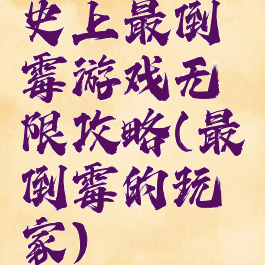 史上最倒
霉游戏无
限攻略(最
倒霉的玩
家)